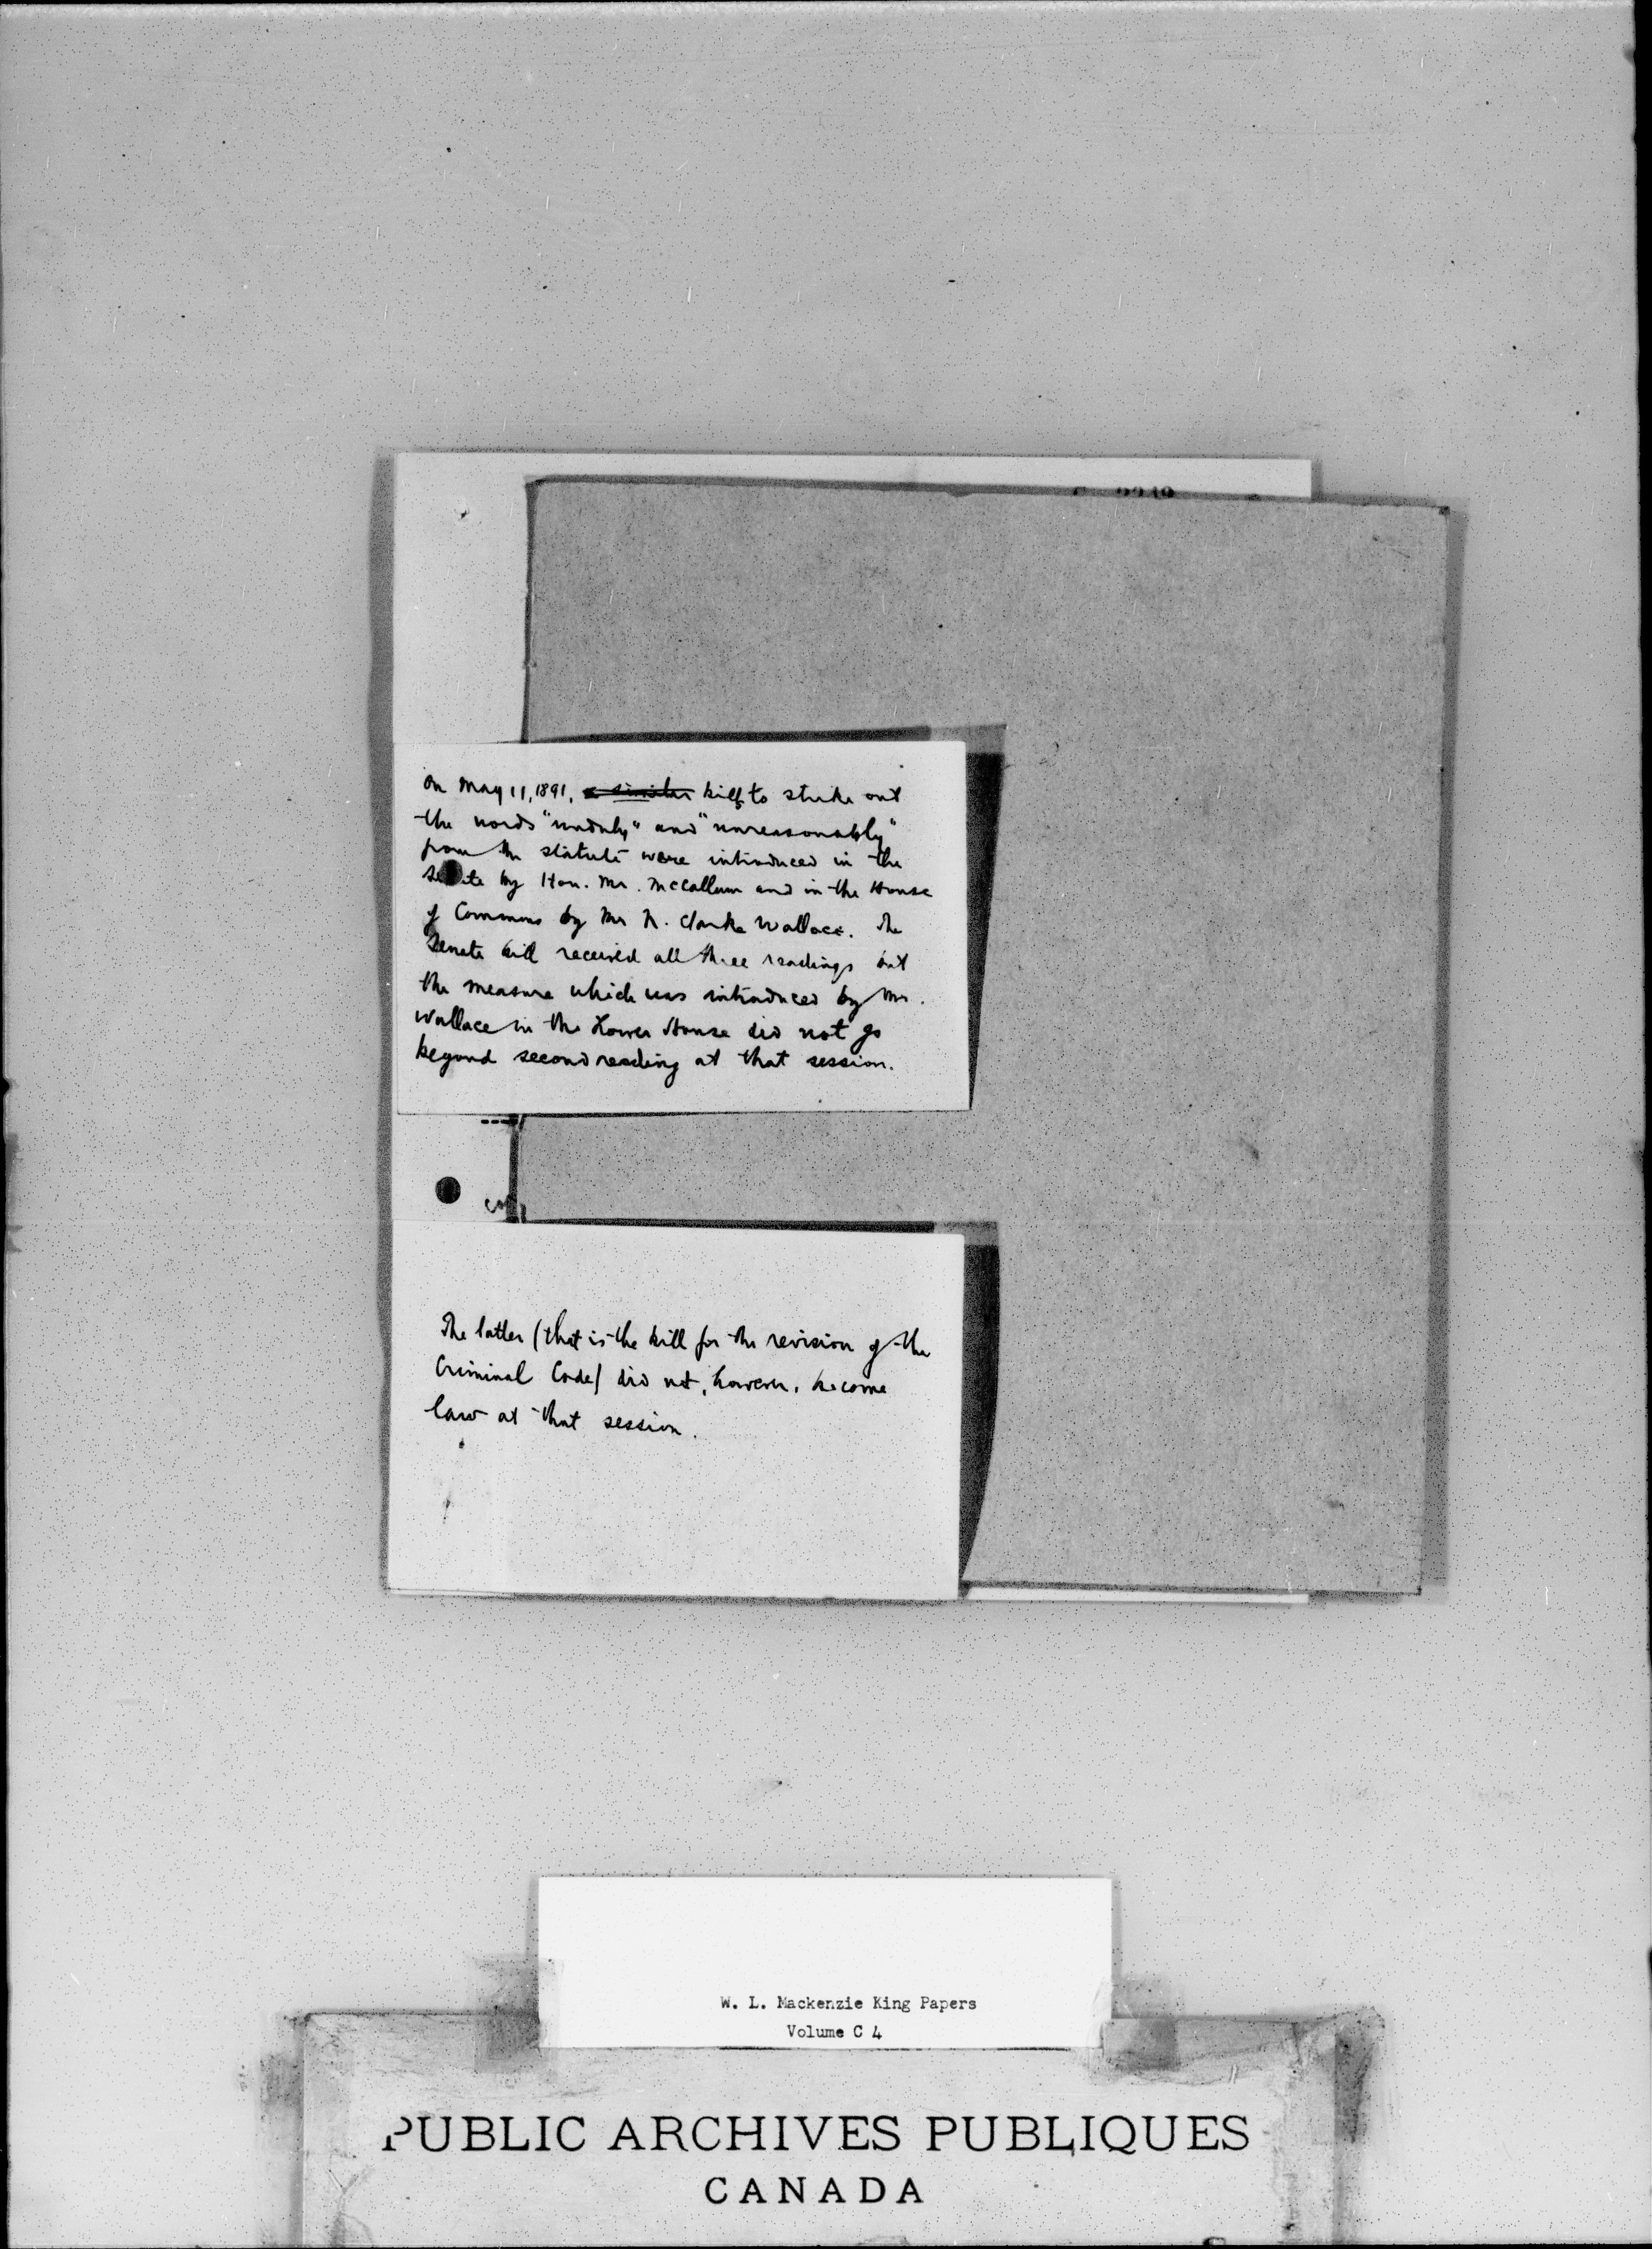 On May 11, 1891, a similar bills to strike out
the words "unduly" and "unreasonably"
from the statute were introduced in the
Senate by Hon. Mr. McCallum and in the House
of Commons by Mr N. Clarke Wallace. The
Senate bill received all three readings but
the measure which was introduced by Mr.
Wallace in the Lower House did not go
beyond second reading at that session.
The latter (that is the bill for the revision of the
Criminal Code) did not, however, become
law at that session.
W. L. Mackenzie King Papers
Volume C 4
PUBLIC ARCHIVES PUBLIQUES
CANADA